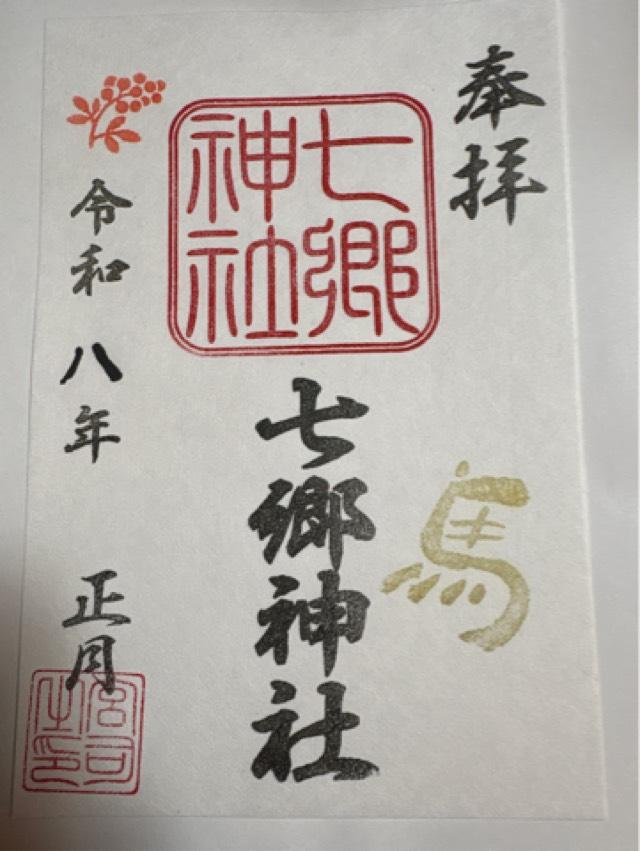 奉拝
七郷
神社
七郷神社
馬
令和八年 正月
宮司
之印